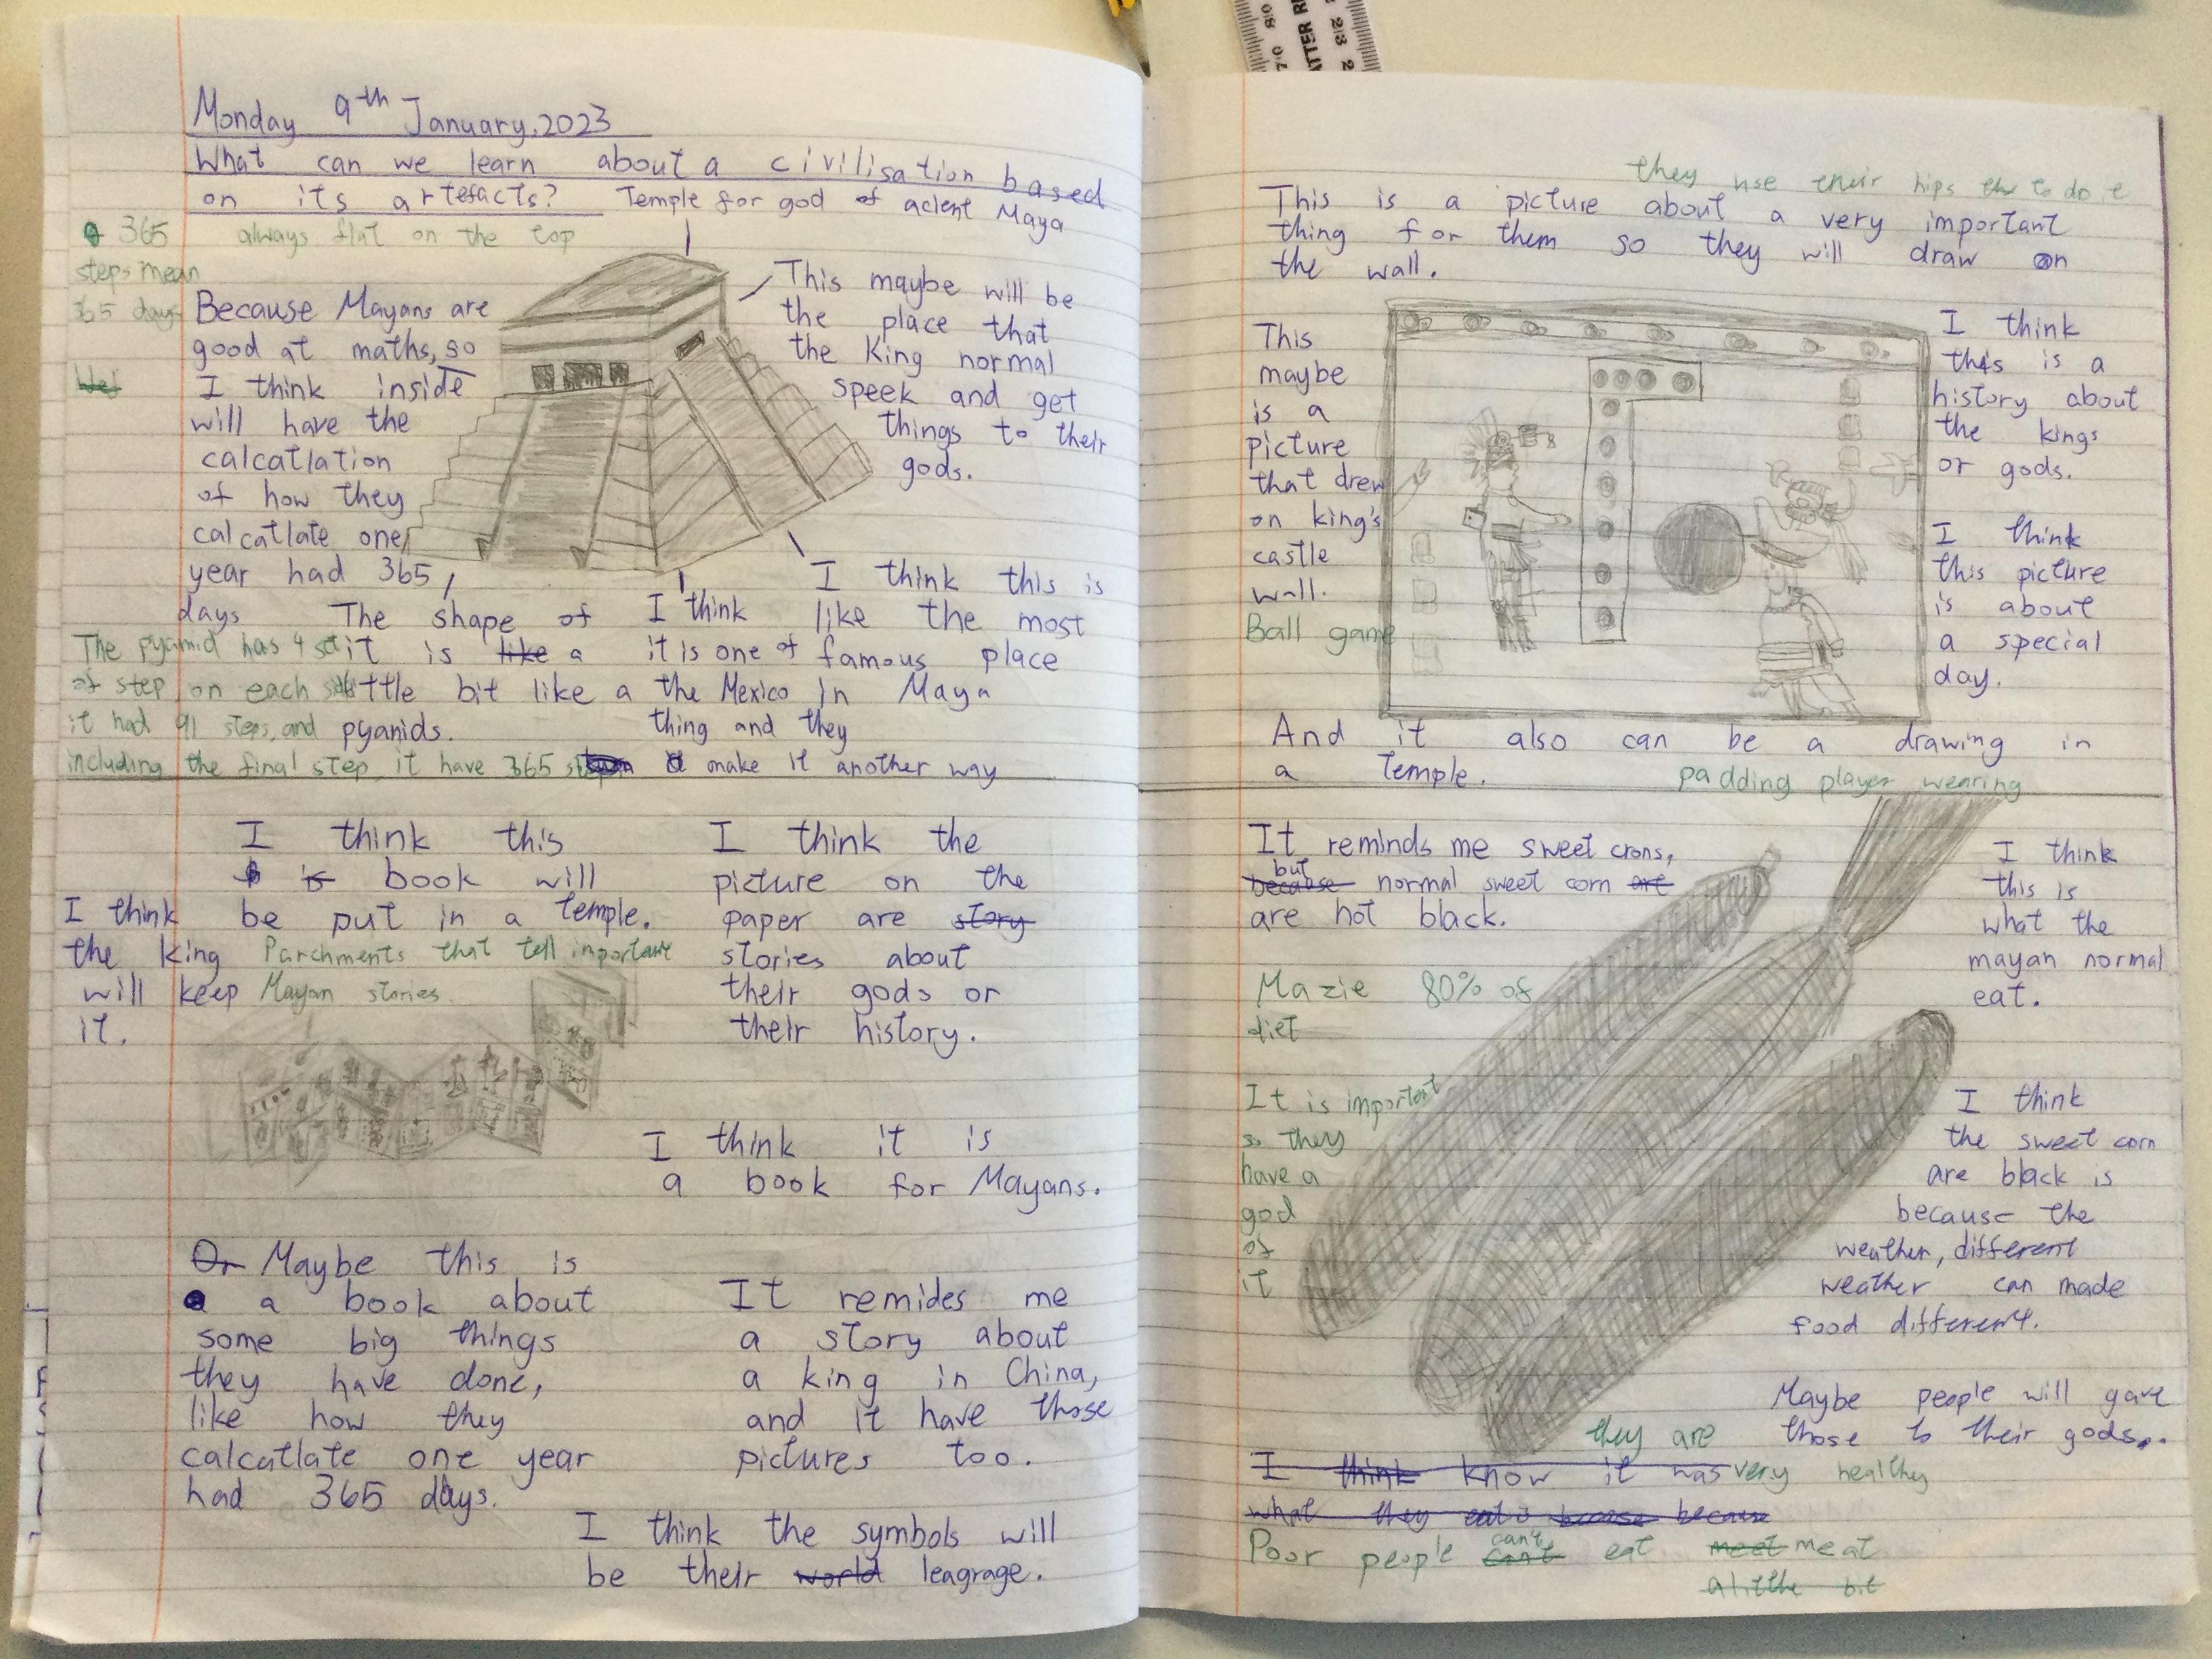 Monday 9th January, 2023
What can we learn about a civilisation based
on its artefacts?
Temple for god of acient Maya
365
steps mean
365 days
always flat on the top
Because Mayans are
good at maths, so
I think inside
will have the
calcatlation
of how they
calcatlate one
year had 365
days
This maybe will be
the place that
the King normal
speek and get
things to their
gods.
The shape of
it is like a
little bit like a
pyanids.
I think
it is one of
the Mexico
thing and they
make it another way
I think this is
like the most
famous place
in Maya
The pyramid has 4 set
of step on each side
it had 91 steps, and
including the final step, it have 365
I think this
is book will
be put in a temple.
I think
the king
will keep
it.
Parchments that tell important
Mayan stories
I think the
picture on the
paper are story
stories about
their gods or
their history.
I think it is
a book for Mayans.
Or Maybe this is
a book about
some big things
they have done,
like how they
calcatlate one year
had 365 days.
It remides me
a story about
a king in China,
and it have those
pictures too.
I think the symbols will
be their world leagrage.
they use their hips to do it
This is a picture about a very important
thing for them so they will draw on
the wall.
This
maybe
is a
picture
that drew
on king's
castle
wall.
Ball game
I think
this is a
history about
the kings
or gods.
I think
this picture
is about
a special
day.
And it also can be a drawing in
a Temple.
padding player wearing
It reminds me sweet crons,
but
because normal sweet corn are
are not black.
Mazie 80% of
diet
It is important
so they
have a
god
of
it
I think
this is
what the
mayan normal
eat.
I think
the sweet corn
are black is
because the
weather, different
weather can made
food different.
Maybe people will gave
those to their gods..
they are
I think know it was very healthy
what they eat because because
Poor people can't can't eat meet meat
a little bit